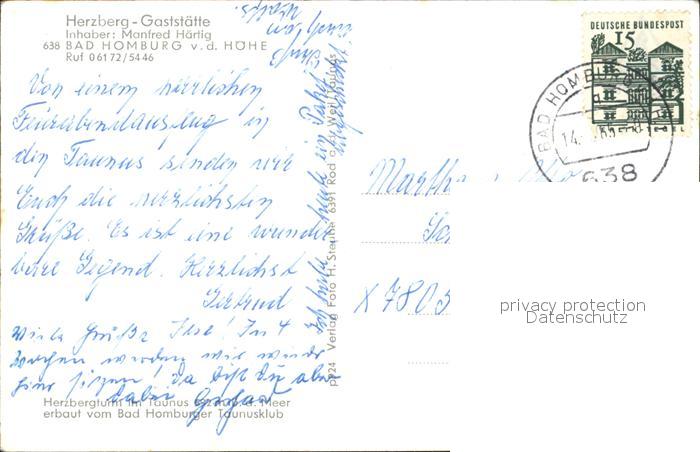 Herzberg - Gaststätte
Inhaber: Manfred Härtig
638 BAD HOMBURG v. d. HÖHE
Ruf 06172/5446
Von einem herrlichen
Feierabendausflug in
den Taunus senden wir
Euch die herzlichsten
Grüße. Es ist eine wunder
bare Gegend. Herzlichst
Gertrud
Viele Grüße Ilse! In 4
Wochen werden wir wieder
hier sitzen! Da bist Du aber
dabei Gerhard
Herzbergturm im Taunus ü. d. Meer
erbaut vom Bad Homburger Taunusklub
Ich habe heute ein Paket
p924 Verlag Foto H. Steube 6391 Rod a. d. Weil/Taunus
DEUTSCHE BUNDESPOST
15
BAD HOMBURG
14.
638
Martha
X 7803
privacy protection
Datenschutz